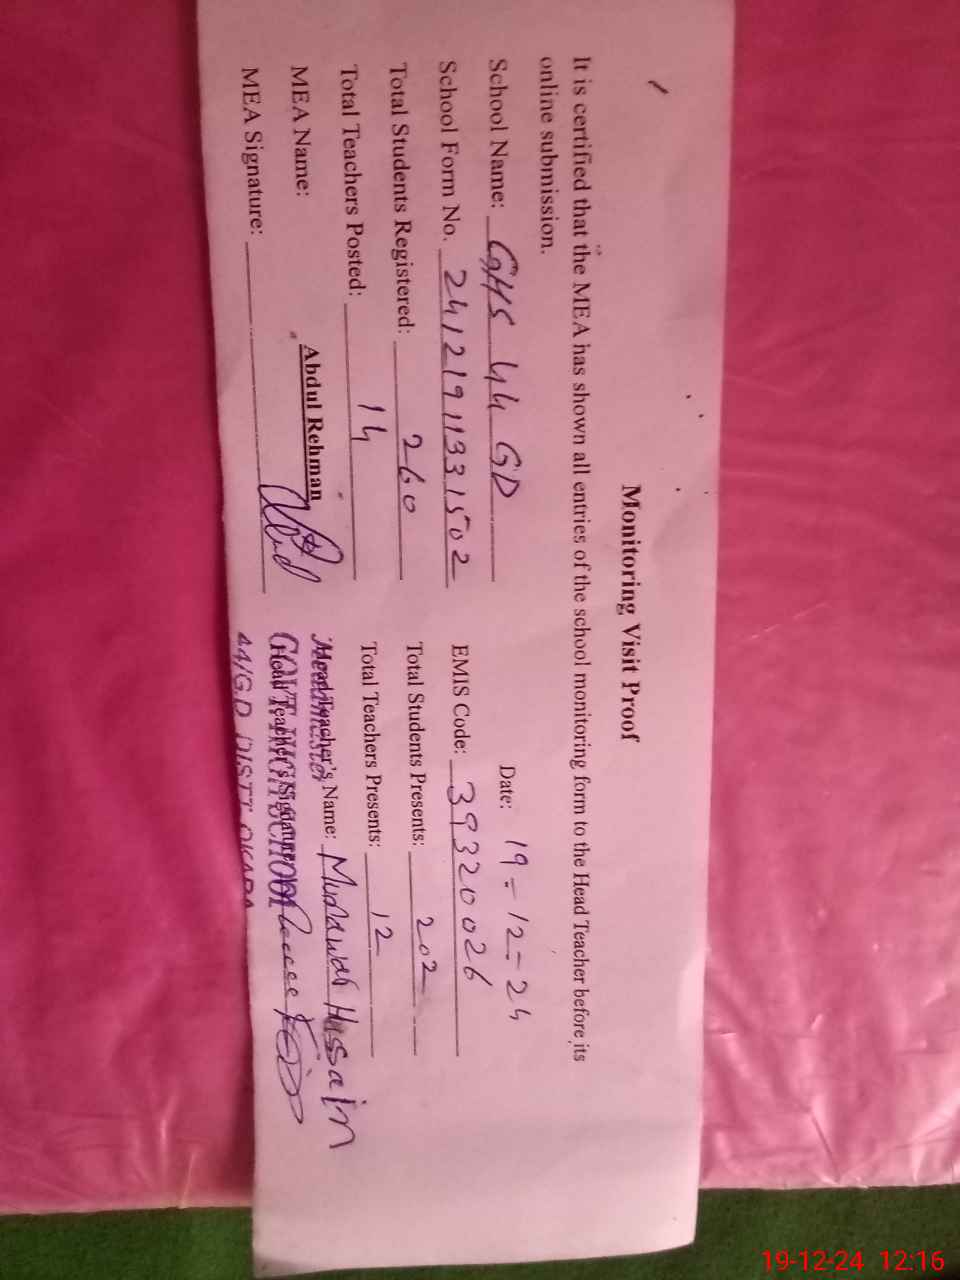 Monitoring Visit Proof
It is certified that the MEA has shown all entries of the school monitoring form to the Head Teacher before its
online submission.
Date: 19-12-24
School Name: GHS 44 GD
School Form No. 24121911331502 EMIS Code: 39320026
Total Students Registered: 260 Total Students Presents: 202
Total Teachers Posted: 14 Total Teachers Presents: 12
MEA Name: Abdul Rehman Head Teacher's Name: Hussain
MEA Signature: Head Teacher's Signature
Headmaster
GOVT. HIGH SCHOOL
44/G.D DISTT OKARA
19-12-24 12:16